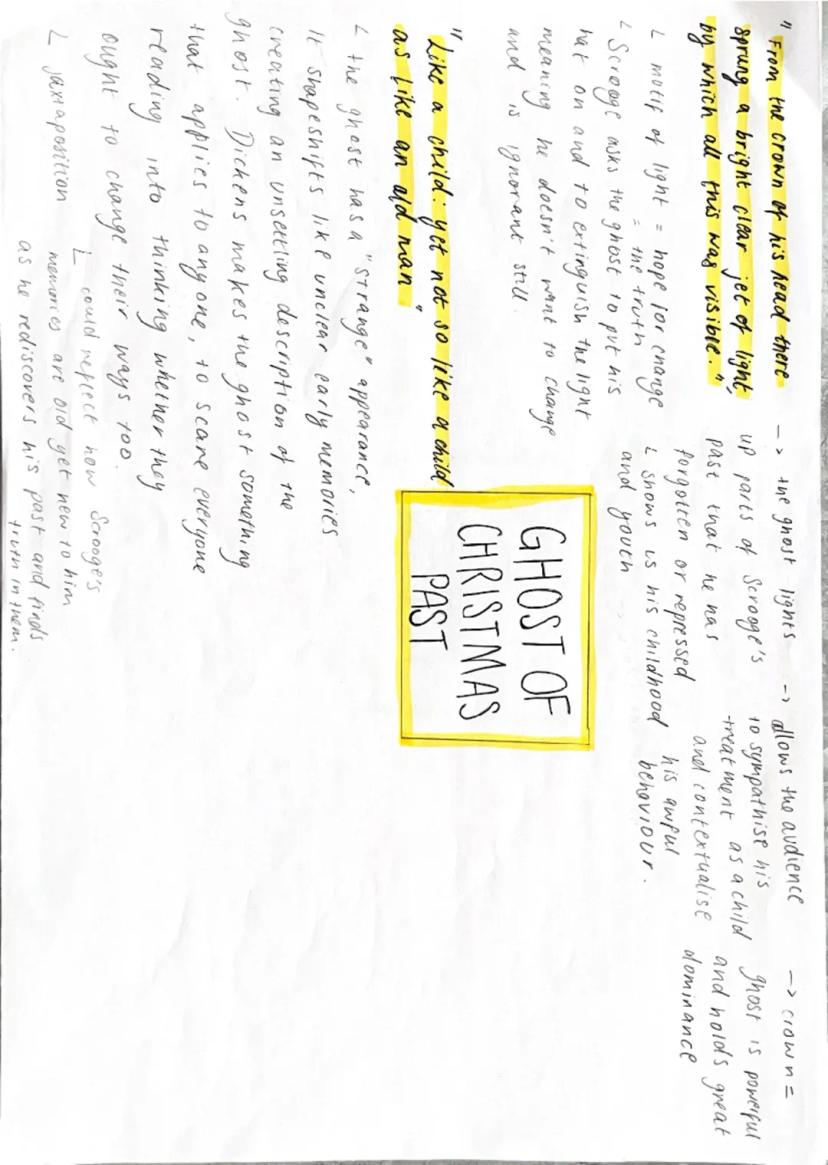 "From the crown of his head there
sprung a bright clear jet of light,
by which all this was visible."
L motif of light = hope for change
= the truth
L Scrooge asks the ghost to put his
hat on and to extinguish the light
meaning he doesn't want to change
and is ignorant still.
-> the ghost lights
up parts of Scrooge's
past that he has
forgotten or repressed
L shows us his childhood
and youth
-> allows the audience
to sympathise his
treatment as a child
and contextualise
his awful
behaviour.
-> crown =
ghost is powerful
and holds great
dominance
"Like a child: yet not so like a child
as like an old man"
L the ghost has a "strange" appearance,
It shapeshifts like unclear early memories
creating an unsettling description of the
ghost. Dickens makes the ghost something
that applies to anyone, to scare everyone
reading into thinking whether they
ought to change their ways too.
L juxtaposition
L could reflect how Scrooge's
memories are old yet new to him
as he rediscovers his past and finds
truth in them.
GHOST OF
CHRISTMAS
PAST